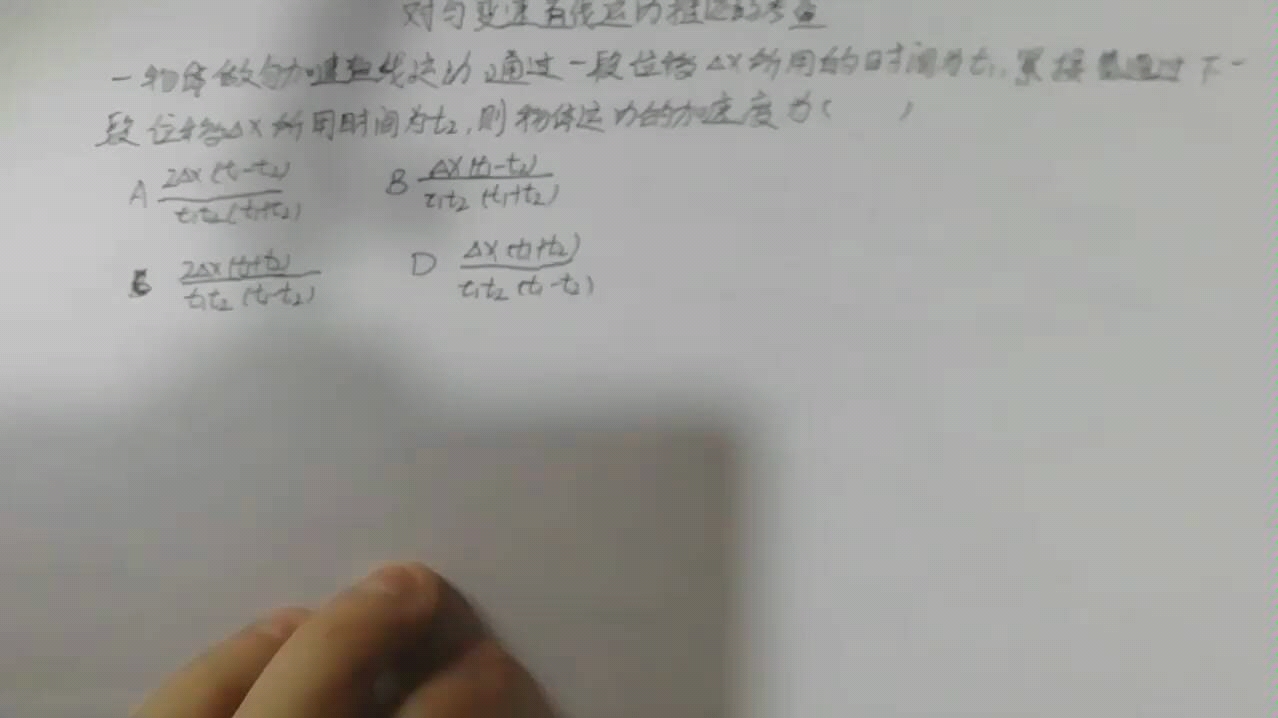 对匀变速直线运动推论的考查
一物体做匀加速直线运动,通过一段位移ΔX所用的时间为t₁,紧接着通过下一
段位移ΔX所用时间为t₂,则物体运动的加速度为( )
A 2ΔX(t₁-t₂)/t₁t₂(t₁+t₂) B ΔX(t₁-t₂)/t₁t₂(t₁+t₂)
C 2ΔX(t₁+t₂)/t₁t₂(t₁-t₂) D ΔX(t₁+t₂)/t₁t₂(t₁-t₂)